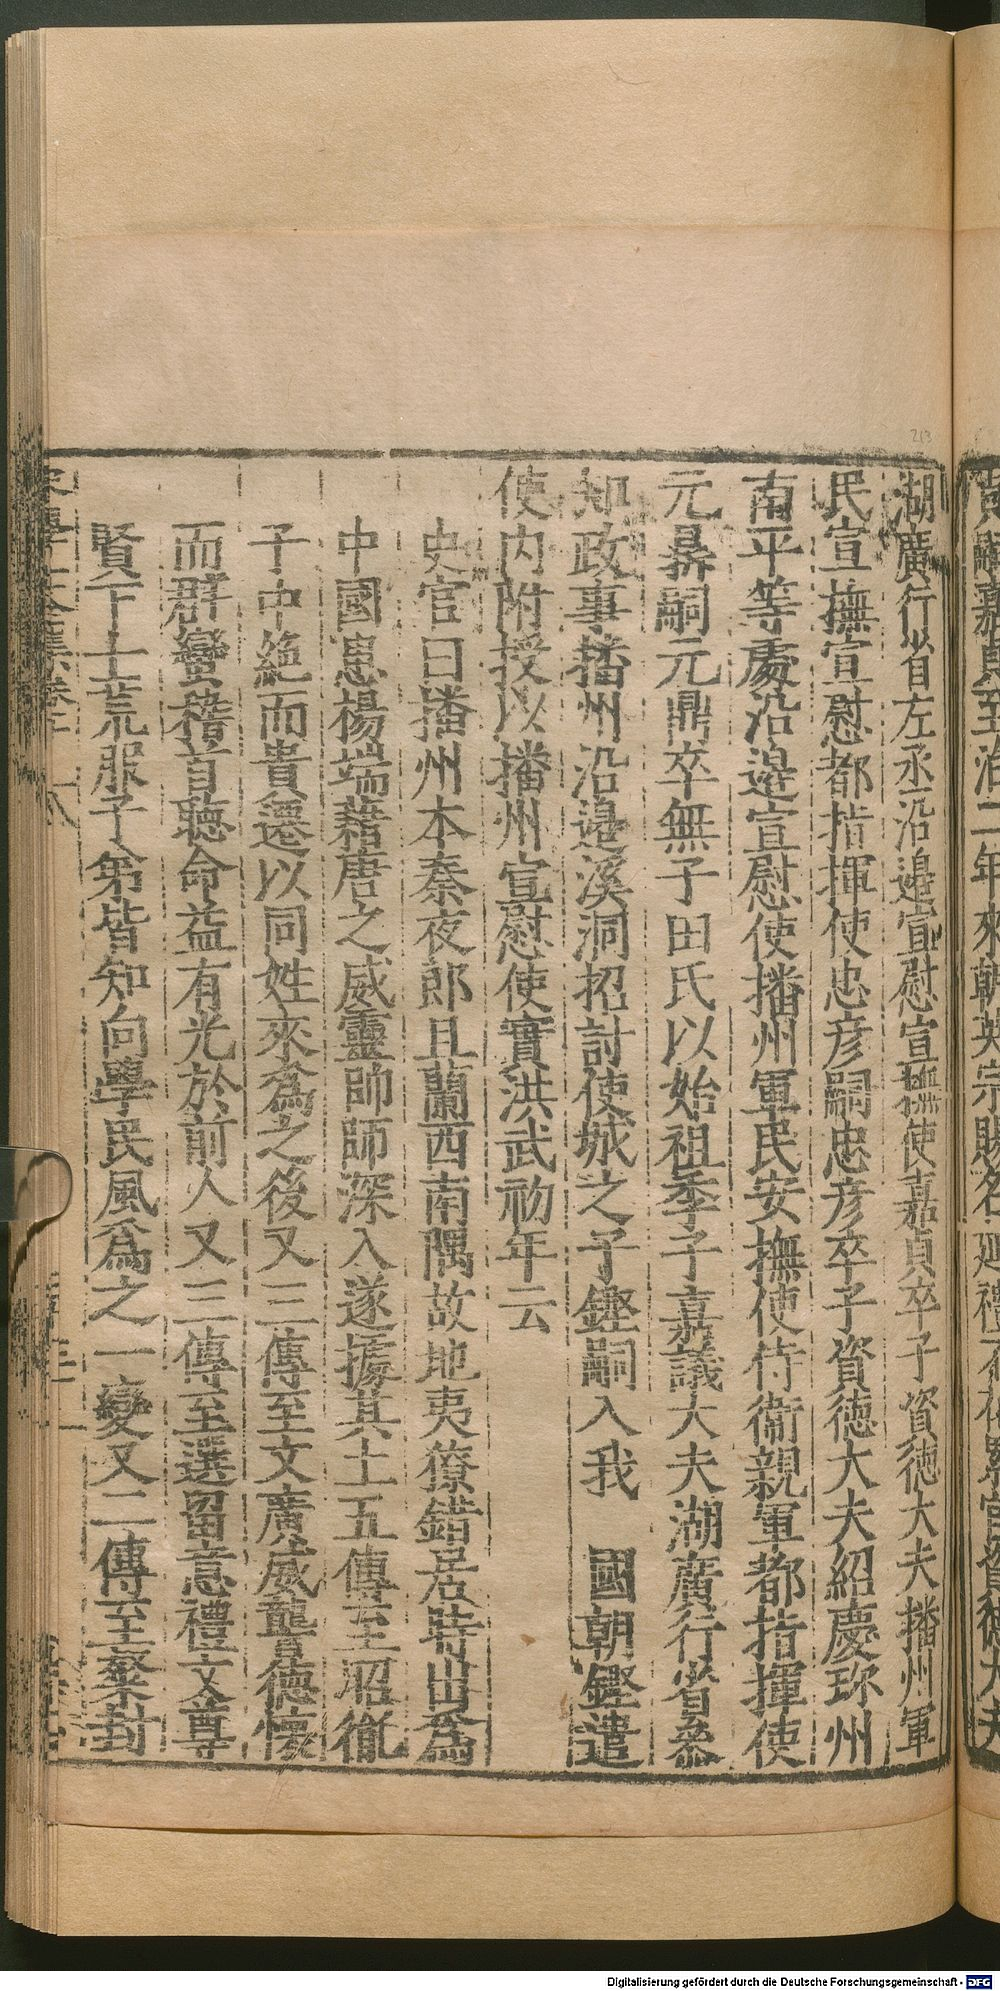 湖廣行省左丞沿邊宣慰宣撫使嘉貞卒子資德大夫播州軍
民宣撫宣慰都指揮使忠彥嗣忠彥卒子資德大夫紹慶珎州
南平等處沿邊宣慰使播州軍民安撫使侍衞親軍都指揮使
元鼎嗣元鼎卒無子田氏以始祖季子嘉議大夫湖廣行省叅
知政事播州沿邊溪洞招討使城之子鏗嗣入我　國朝鏗遣
使內附授以播州宣慰使實洪武初年云
史官曰播州本秦夜郎且蘭西南隅故地夷獠錯居時出為
中國患楊端藉唐之威靈帥師深入遂據其土五傳至昭徹
子中絕而貴遷以同姓來為之後又三傳至文廣威讋德懷
而群蠻稽首聽命益有光於前人又三傳至選留意禮文尊
賢下士荒服子弟皆知向學民風為之一變又二傳至粲封
213
Digitalisierung gefördert durch die Deutsche Forschungsgemeinschaft - DFG